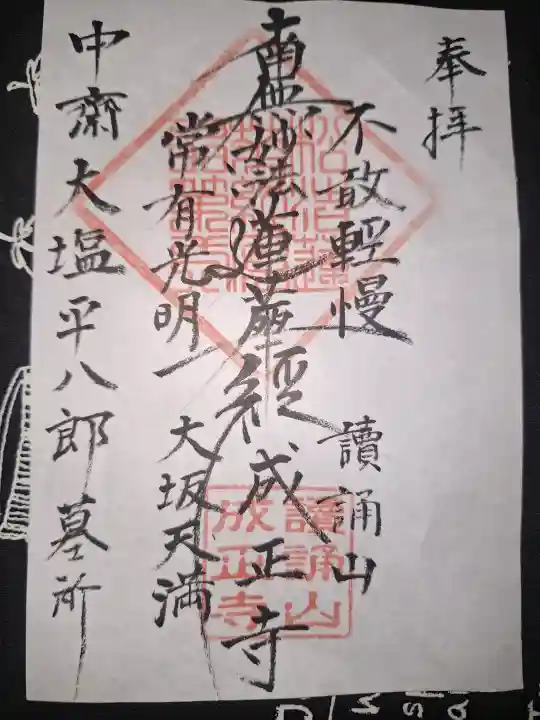 奉拝
不敢輕慢
讀誦山
南無妙法蓮華経
成正寺
常有光明
大坂天満
中齋大塩平八郎墓所
讀誦山
成正寺